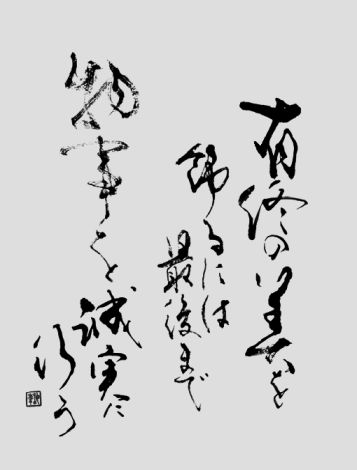 有終の美を
飾るには
最後まで
物事を誠実に
行う